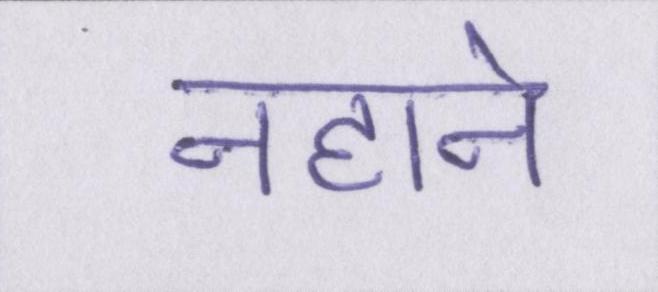 नहाने